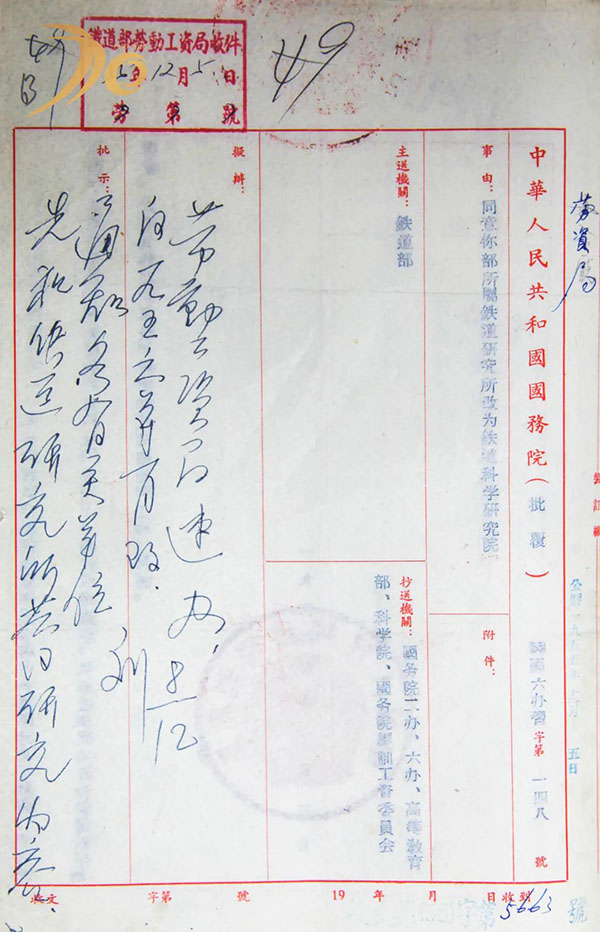 鐵道部勞動工資局收件
12月5日
勞 第 號
49
勞資局
中華人民共和國國務院(批覆)
國六办習字第一四八號
公曆一九五五年
五日
事由:同意你部所屬鉄道研究所改为鉄道科学研究院
附件:
主送機關:鉄道部
抄送機關:國务院二办、六办、高等教育
部、科学院、國务院編制工資委員会
擬辦:
劳動工資局速办,
8/12
批示:
自一九五六年一月改.
通知各有关单位
先和鉄道研究所共同研究內容.
收文 字第 號 19 年 月 日收到
5663號